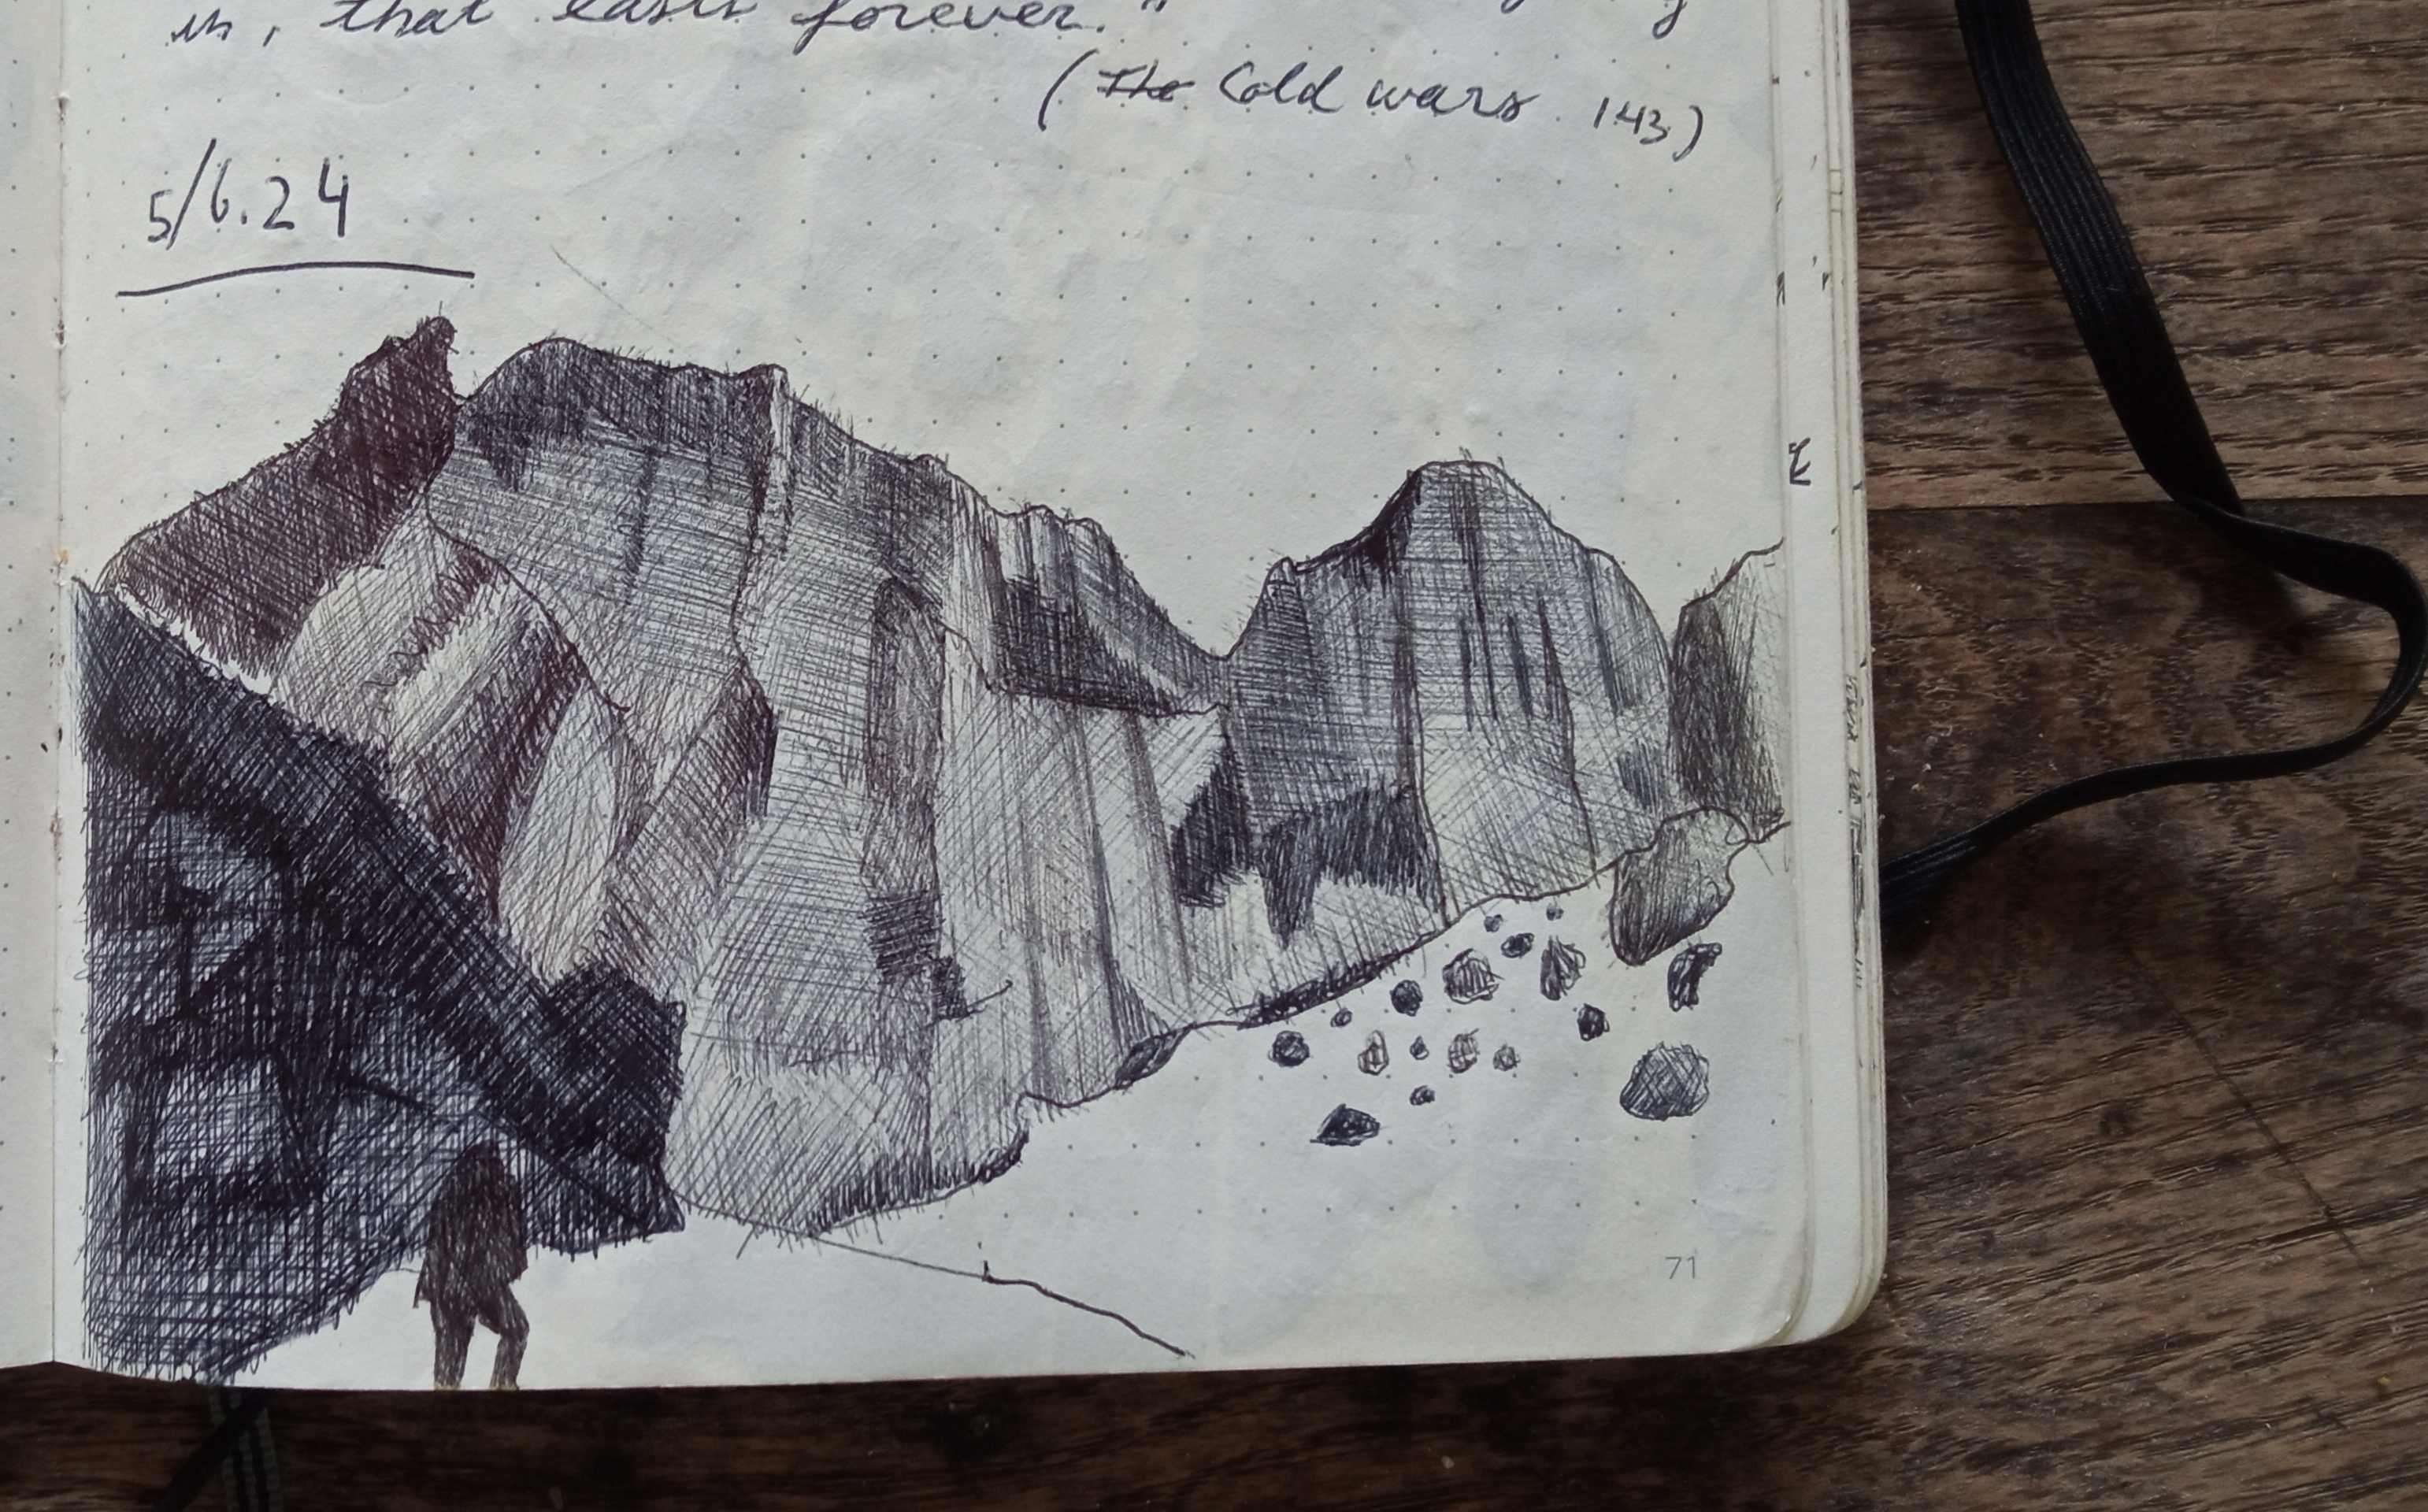 in, that lasts forever."
(The Cold wars 143)
5/6.24
71